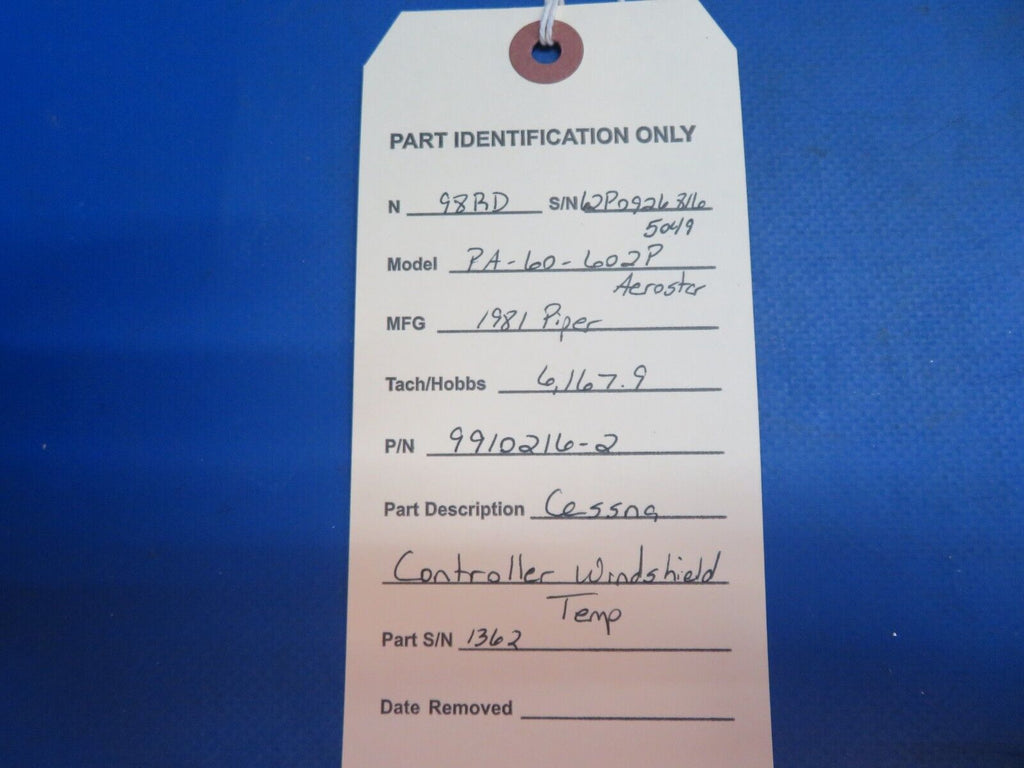 PART IDENTIFICATION ONLY
N 98RD S/N 62P0926 8165049
Model PA-60-602P
Aerostar
MFG 1981 Piper
Tach/Hobbs 6,167.9
P/N 9910216-2
Part Description Cessna
Controller Windshield
Temp
Part S/N 1362
Date Removed